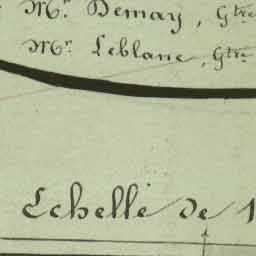 Mr. Demay, Gtre
Mr. Leblanc, Gtre
Echelle de 1